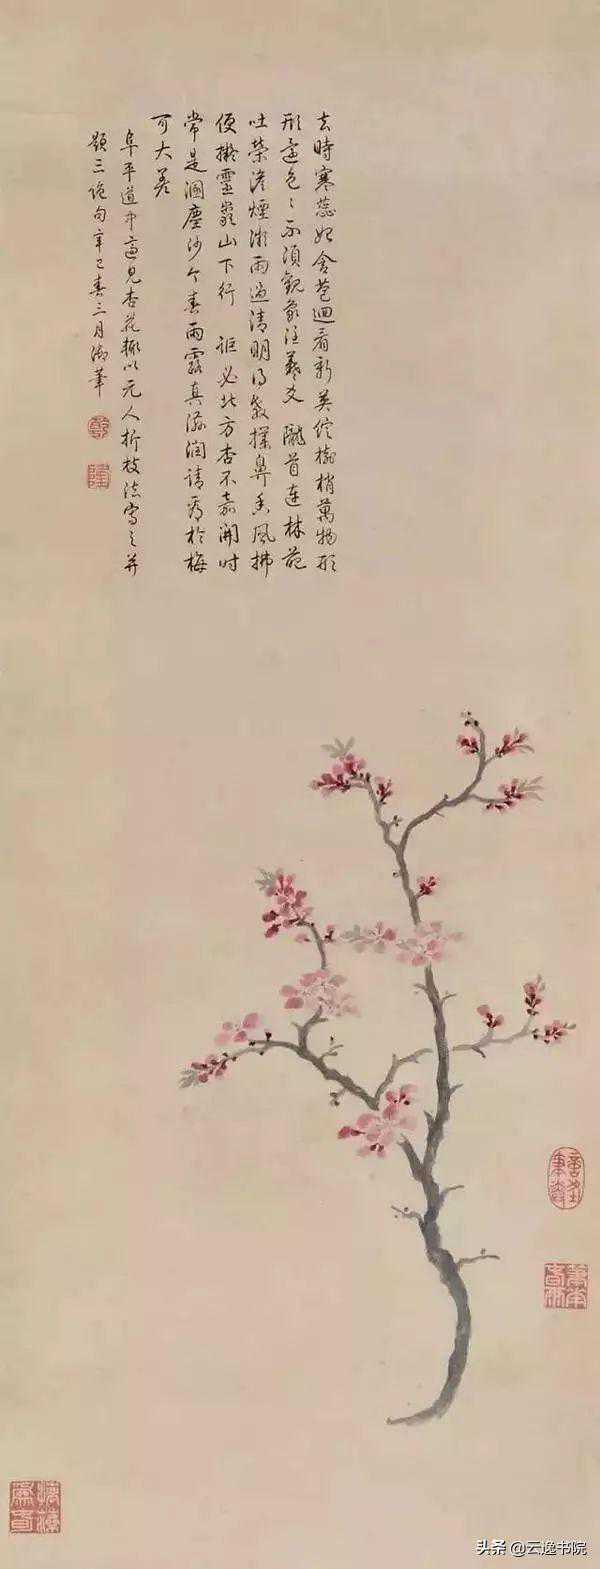 去時寒蕊始含苞迴看新英綻樹梢萬物形
形還色〻不須觀象注羲爻 隴首連林葩
吐榮澹煙微雨過清明得教撲鼻香風拂
便擬靈巖山下行 詎必北方杏不嘉開時
常是溷塵沙今春雨露真滋潤請看於梅
可大差
阜平道中適見杏花輒以元人折枝法寫之并
題三絕句辛巳春三月御筆
乾
隆
头条 @云逸书院